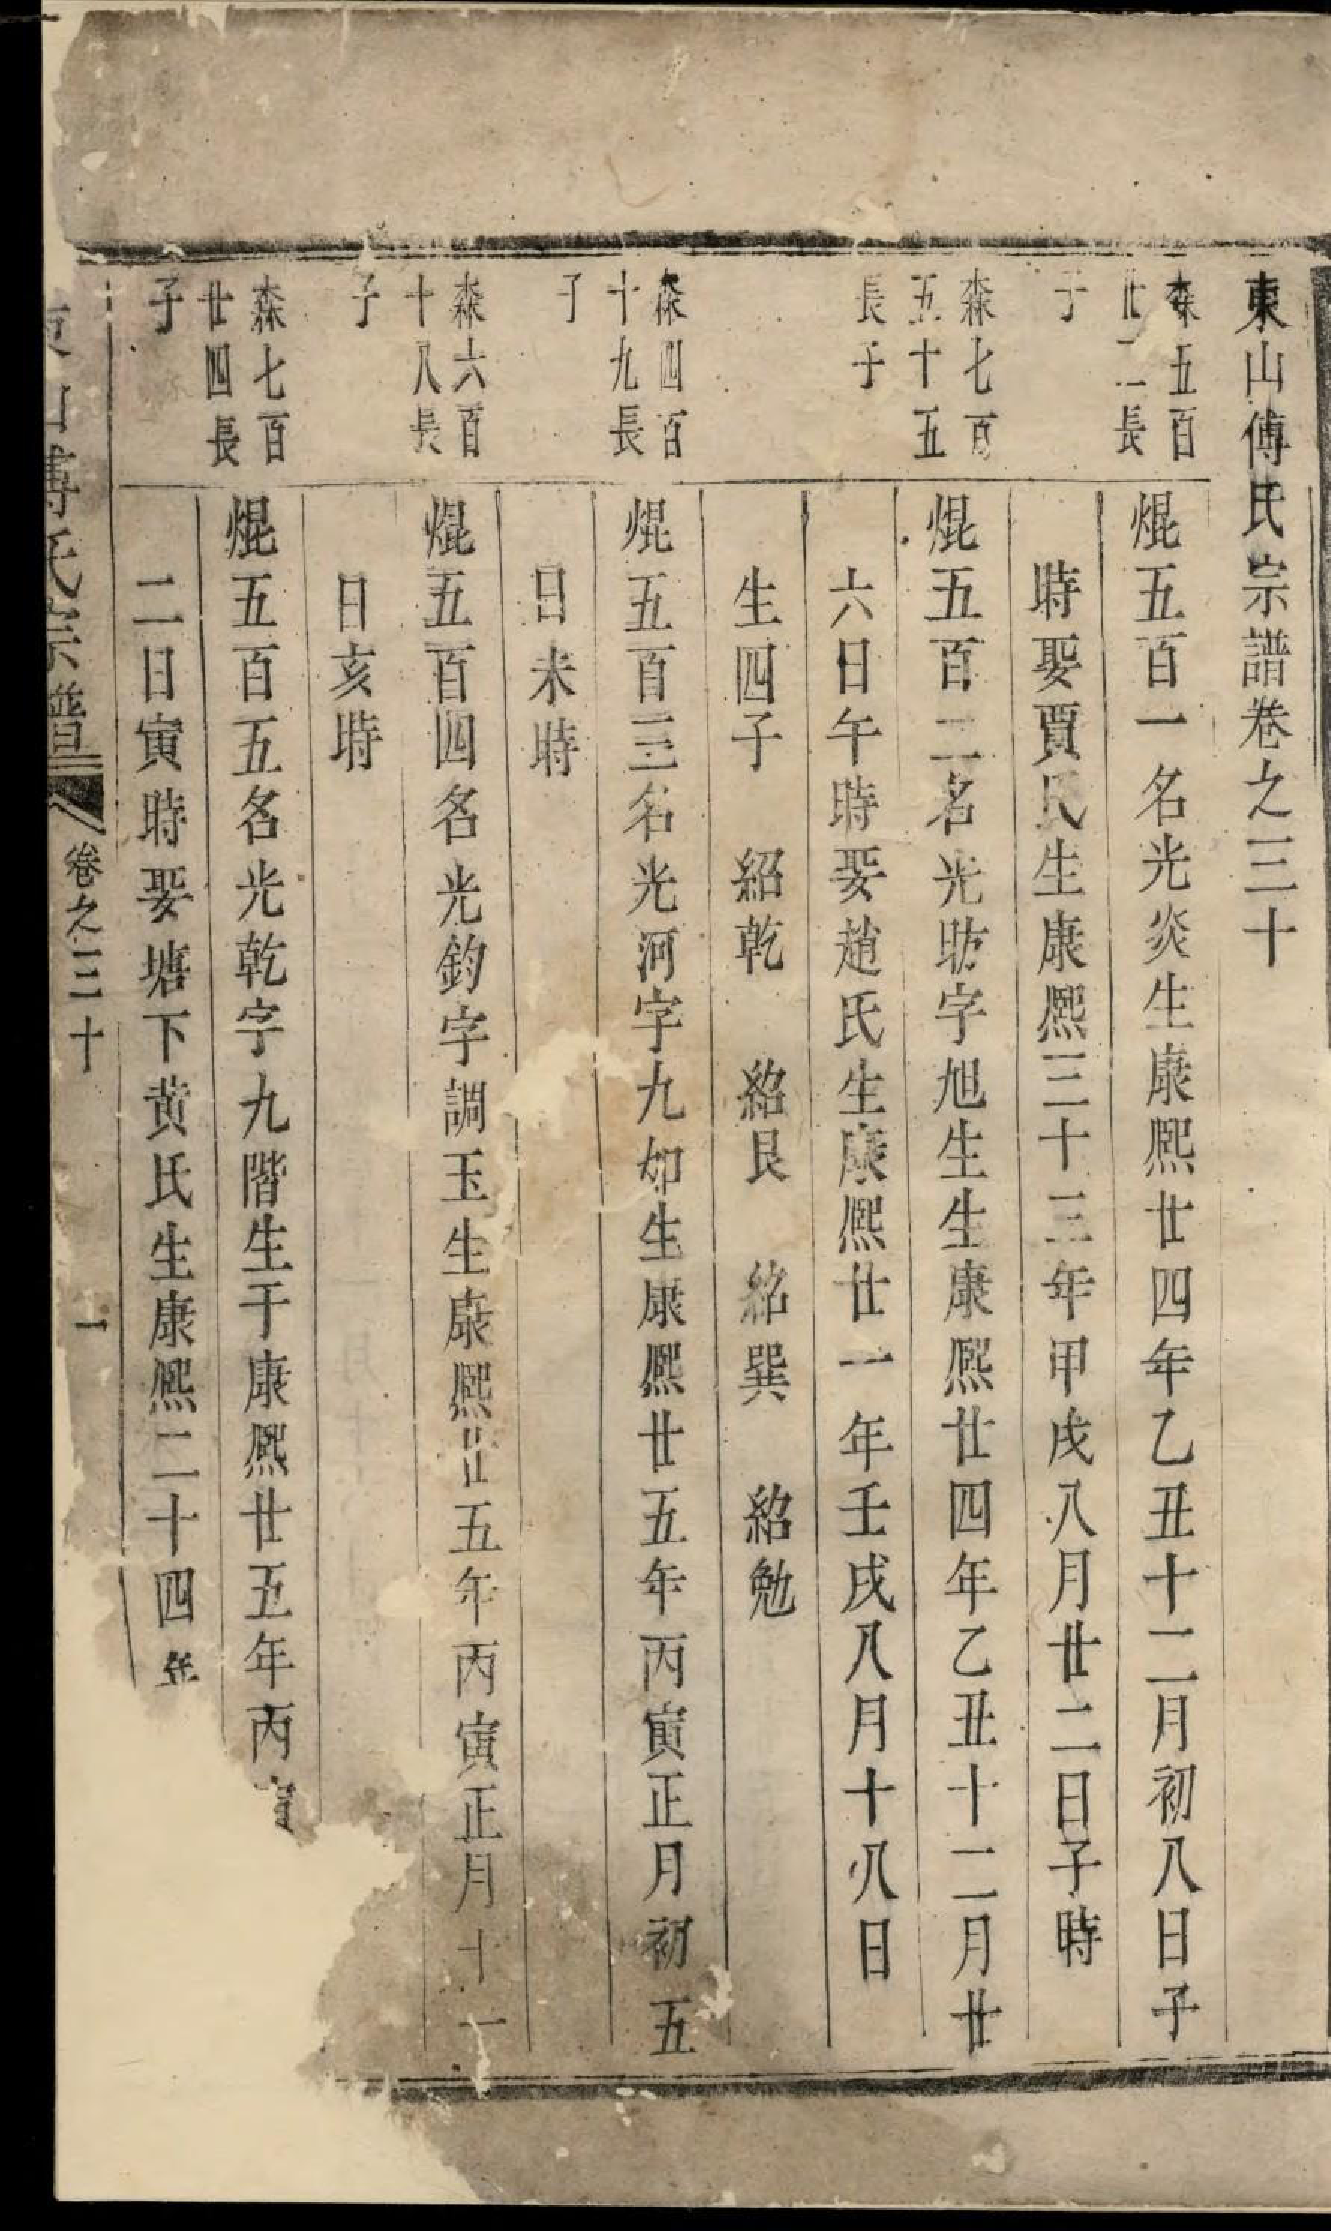 東山傅氏宗譜卷之三十
森五百
廿二長
子
焜五百一名光炎生康熙廿四年乙丑十二月初八日子
時娶賈氏生康熙三十三年甲戌八月廿二日子時
森七百
五十五
長子
焜五百二名光昉字旭生生康熙廿四年乙丑十二月廿
六日午時娶趙氏生康熙廿一年壬戌八月十八日
生四子 紹乾 紹艮 紹巽 紹勉
森四百
十九長
子
焜五百三名光河字九如生康熙廿五年丙寅正月初五
日未時
森六百
十八長
子
焜五百四名光鈞字調玉生康熙廿五年丙寅正月十一
日亥時
森七百
廿四長
子
焜五百五名光乾字九階生于康熙廿五年丙寅
二日寅時娶塘下黄氏生康熙二十四年
東山傅氏宗譜 卷之三十 一